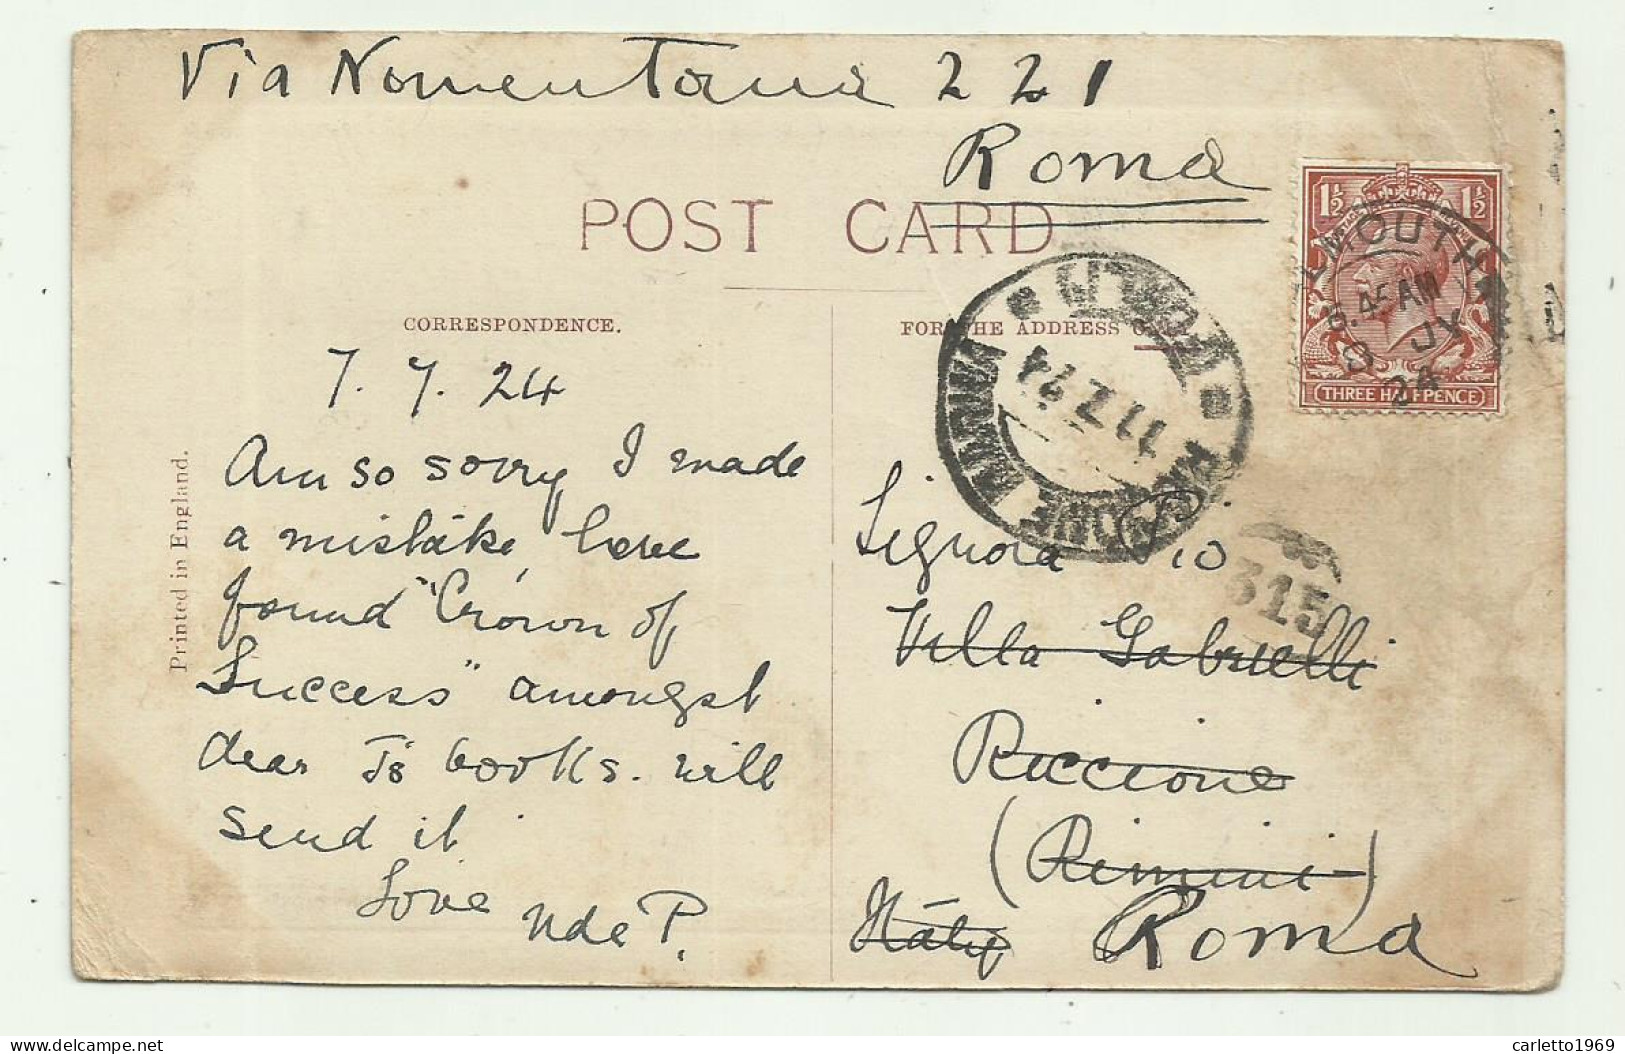 Via Nomentana 221
Roma
POST CARD
1½ 1½
MOUTH
6.45 AM
9 JY
24
THREE HALFPENCE
CORRESPONDENCE.
FOR THE ADDRESS
FORLI
MARINA
11 7 24
315
Printed in England.
7.7.24
Am so sorry I made
a mistake, have
found "Crown of
Success" amongst
dear J's books. will
send it
Love
P.
Signora Pio
Villa Gabrielli
Riccione
(Rimini)
Italy Roma
carletto1969
delcampe.net